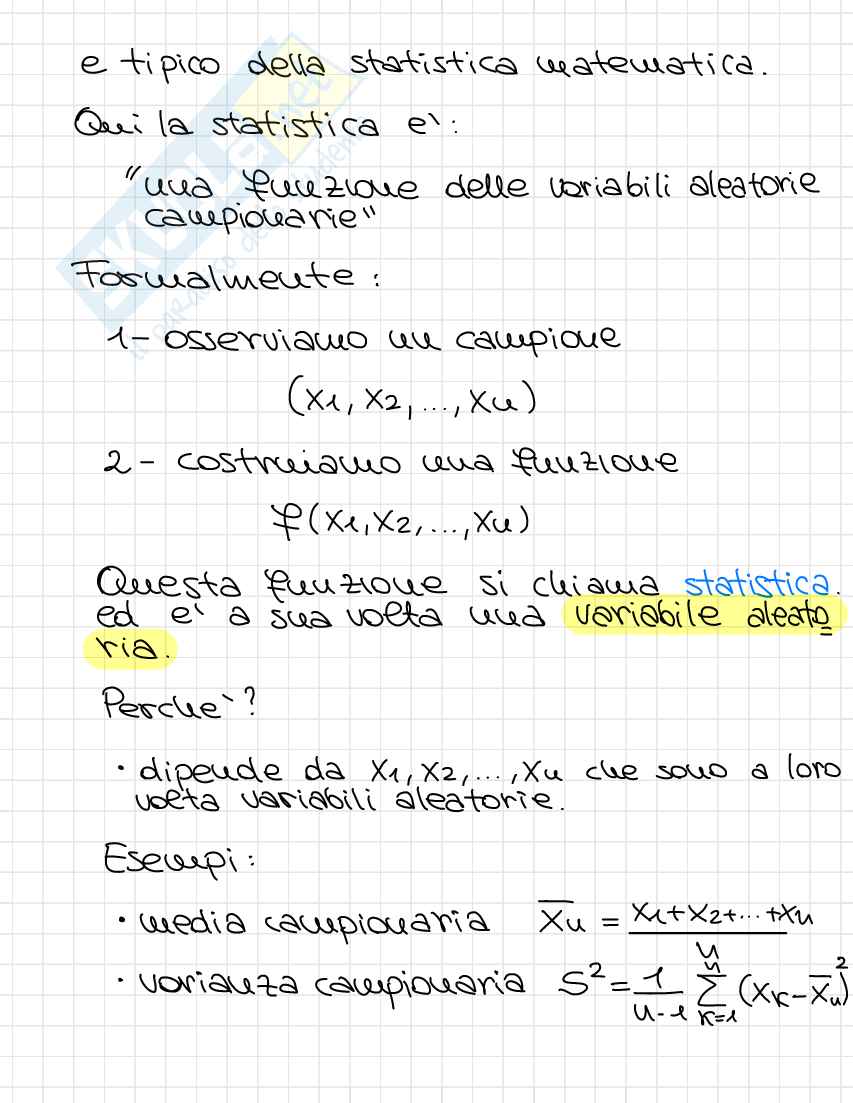 e tipico della statistica matematica.
Qui la statistica e`:
"una funzione delle variabili aleatorie
campionarie"
Formalmente:
1- osserviamo un campione
(X1, X2, ..., Xn)
2- costruiamo una funzione
φ(X1, X2, ..., Xn)
Questa funzione si chiama statistica.
ed e` a sua volta una variabile aleato
ria.
Perche`?
· dipende da X1, X2, ..., Xn che sono a loro
volta variabili aleatorie.
Esempi:
· media campionaria X̄n = (X1+X2+...+Xn)/n
· varianza campionaria S² = 1/(n-1) Σ_{k=1}^{n} (Xk - X̄n)²
SKUOLA.net
il paradiso dello studente